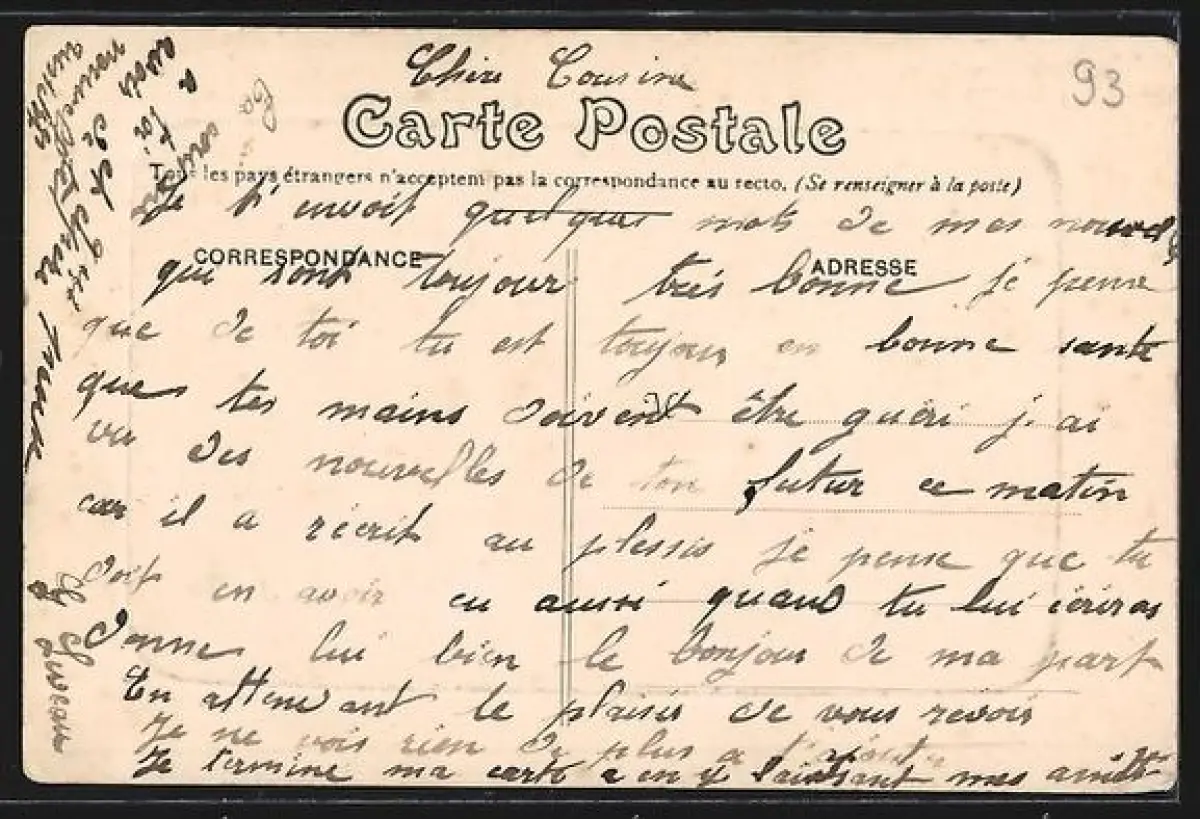 Chère Cousine
93
Carte Postale
Tous les pays étrangers n'acceptent pas la correspondance au recto. (Se renseigner à la poste)
Je t'envoit quelques mots de mes nouvel
CORRESPONDANCE
ADRESSE
qui sont toujour très bonne je pense
que de toi tu est toujour en bonne sante
que tes mains doivent être guéri j'ai
vu des nouvelles de ton futur ce matin
car il a récrit au plessis je pense que tu
doit en avoir eu aussi quand tu lui écriras
donne lui bien le bonjour de ma part
En attendant le plaisir de vous revoir
Je ne vois rien de plus a
Je termine ma carte en y laissant mes amitié
a toi
avoir de
nouvelles